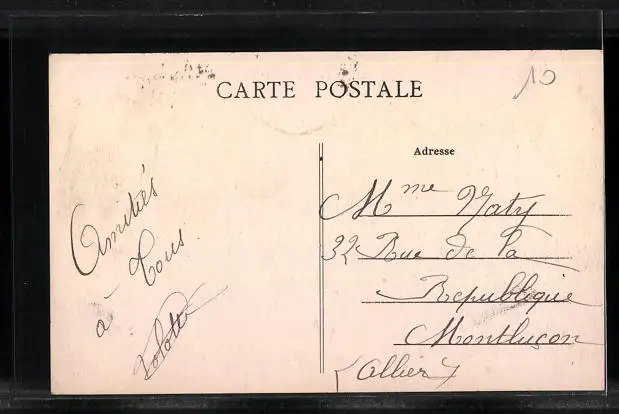 CARTE POSTALE
10
Adresse
Amitiés
à Tous
Mme Naty
32 Rue de la
République
Montluçon
(Allier)